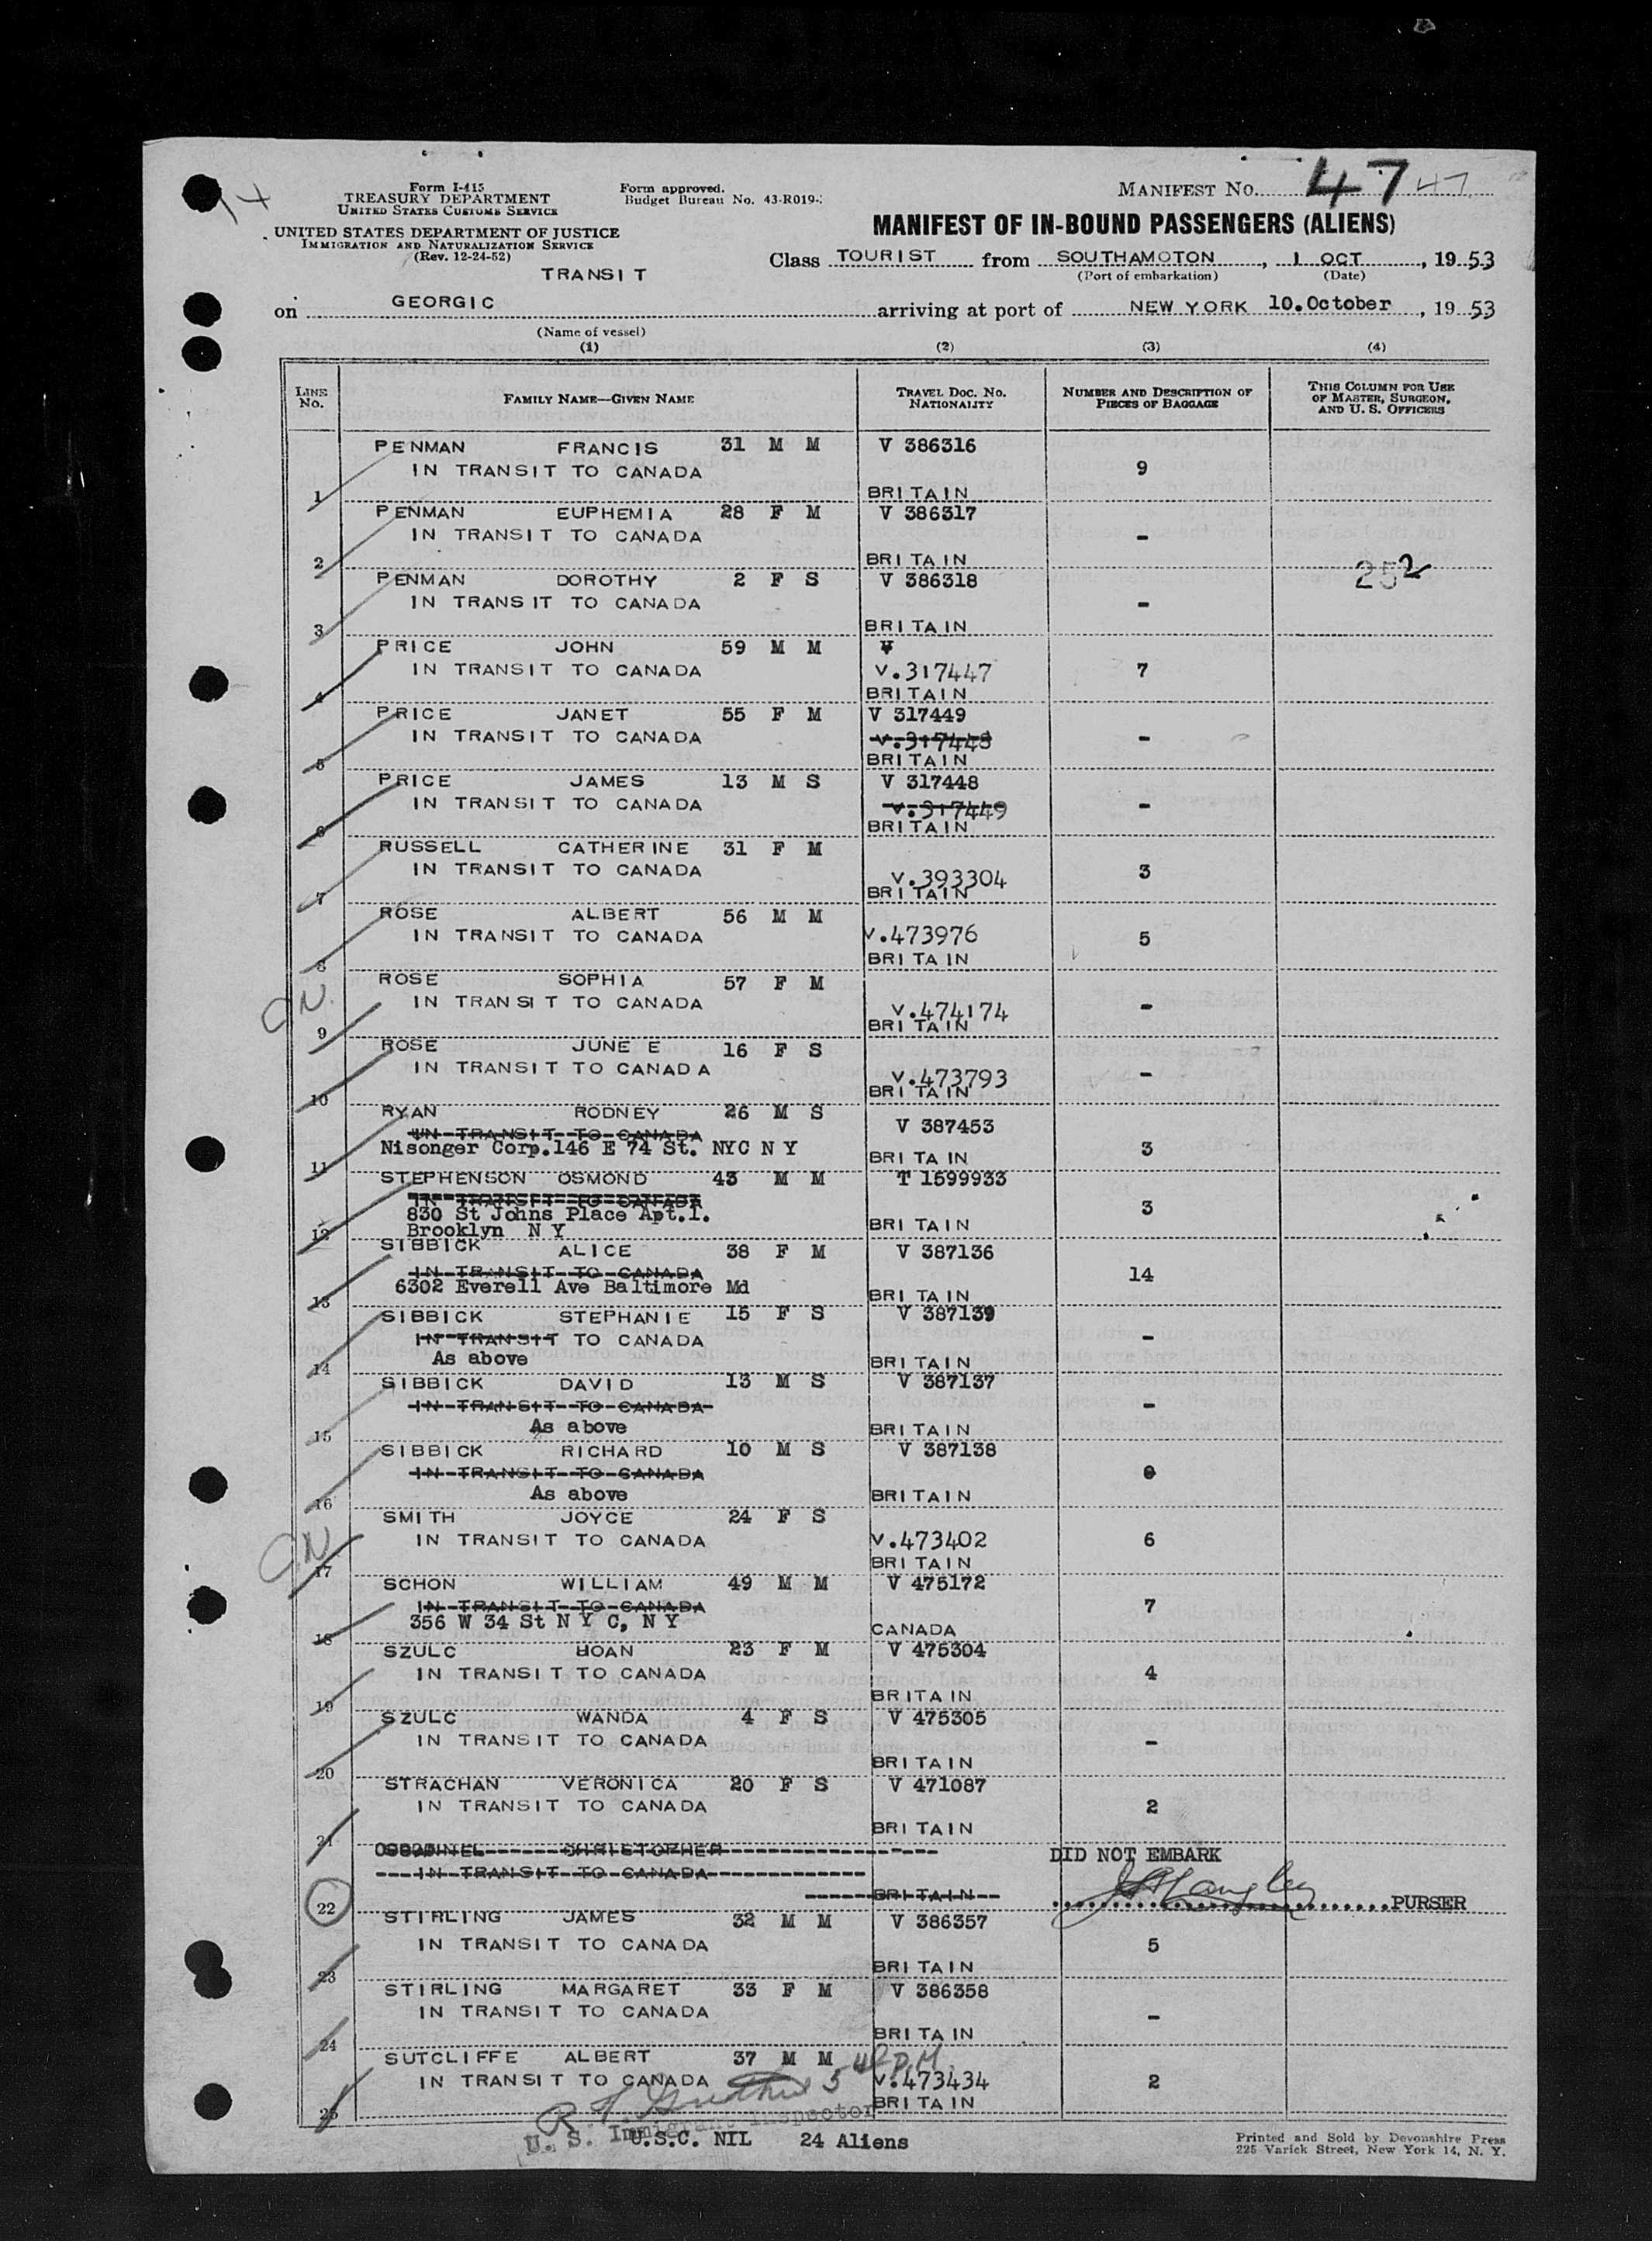 Form I-415
TREASURY DEPARTMENT
UNITED STATES CUSTOMS SERVICE
UNITED STATES DEPARTMENT OF JUSTICE
IMMIGRATION AND NATURALIZATION SERVICE
(Rev. 12-24-52)
Form approved.
Budget Bureau No. 43-R019-
MANIFEST NO. 47 47
MANIFEST OF IN-BOUND PASSENGERS (ALIENS)
Class TOURIST from SOUTHAMOTON, 1 OCT, 19 53
(Port of embarkation) (Date)
TRANSIT
on GEORGIC arriving at port of NEW YORK 10.October, 19 53
(Name of vessel)
(1) (2) (3) (4)
LINE No. FAMILY NAME—GIVEN NAME TRAVEL DOC. NO. NATIONALITY NUMBER AND DESCRIPTION OF PIECES OF BAGGAGE THIS COLUMN FOR USE OF MASTER, SURGEON, AND U. S. OFFICERS
PENMAN FRANCIS 31 M M V 386316
IN TRANSIT TO CANADA 9
1 BRITAIN
PENMAN EUPHEMIA 28 F M V 386317
IN TRANSIT TO CANADA -
2 BRITAIN
252
PENMAN DOROTHY 2 F S V 386318
IN TRANSIT TO CANADA -
3 BRITAIN
PRICE JOHN 59 M M V
IN TRANSIT TO CANADA V.317447 7
4 BRITAIN
PRICE JANET 55 F M V 317449
IN TRANSIT TO CANADA V.317448 -
5 BRITAIN
PRICE JAMES 13 M S V 317448
IN TRANSIT TO CANADA V.317449 -
6 BRITAIN
RUSSELL CATHERINE 31 F M
IN TRANSIT TO CANADA V.393304 3
7 BRITAIN
ROSE ALBERT 56 M M
IN TRANSIT TO CANADA V.473976 5
8 BRITAIN
ROSE SOPHIA 57 F M
IN TRANSIT TO CANADA V.474174 -
9 BRITAIN
ROSE JUNE E 16 F S
IN TRANSIT TO CANADA V.473793 -
10 BRITAIN
RYAN RODNEY 26 M S V 387453
IN TRANSIT TO CANADA
Nisonger Corp.146 E 74 St. NYC N Y 3
11 BRITAIN
STEPHENSON OSMOND 43 M M T 1599933
IN TRANSIT TO CANADA
830 St Johns Place Apt.1. 3
12 Brooklyn N Y BRITAIN
SIBBICK ALICE 38 F M V 387136
IN TRANSIT TO CANADA 14
6302 Everell Ave Baltimore Md
13 BRITAIN
SIBBICK STEPHANIE 15 F S V 387139
IN TRANSIT TO CANADA -
14 As above BRITAIN
SIBBICK DAVID 13 M S V 387137
IN TRANSIT TO CANADA -
15 As above BRITAIN
SIBBICK RICHARD 10 M S V 387138
IN TRANSIT TO CANADA
16 As above BRITAIN
SMITH JOYCE 24 F S
IN TRANSIT TO CANADA V.473402 6
17 BRITAIN
SCHON WILLIAM 49 M M V 475172
IN TRANSIT TO CANADA 7
356 W 34 St N Y C, N Y
18 CANADA
SZULC HOAN 23 F M V 475304
IN TRANSIT TO CANADA 4
19 BRITAIN
SZULC WANDA 4 F S V 475305
IN TRANSIT TO CANADA -
20 BRITAIN
STRACHAN VERONICA 20 F S V 471087
IN TRANSIT TO CANADA 2
21 BRITAIN
CHRISTOPHER DID NOT EMBARK
IN TRANSIT TO CANADA
22 BRITAIN PURSER
STIRLING JAMES 32 M M V 386357
IN TRANSIT TO CANADA 5
23 BRITAIN
STIRLING MARGARET 33 F M V 386358
IN TRANSIT TO CANADA -
24 BRITAIN
SUTCLIFFE ALBERT 37 M M
IN TRANSIT TO CANADA V.473434 2
25 BRITAIN
U. S. Immigrant Inspector
U.S.C. NIL 24 Aliens
Printed and Sold by Devonshire Press
225 Varick Street, New York 14, N. Y.